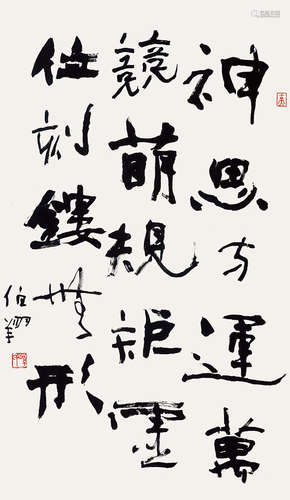 神思方運萬
競萌規矩虛
位刻鏤無形